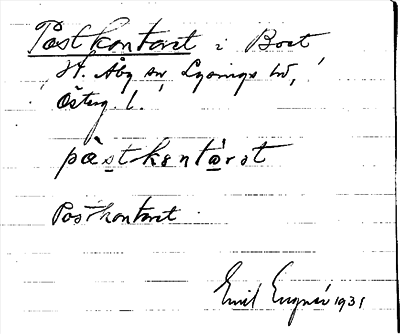 Postkontoret i Boet
St. Åby sn, Lysings hd,
Österg. l.
påstkontórət
Postkontoret
Emil 1931